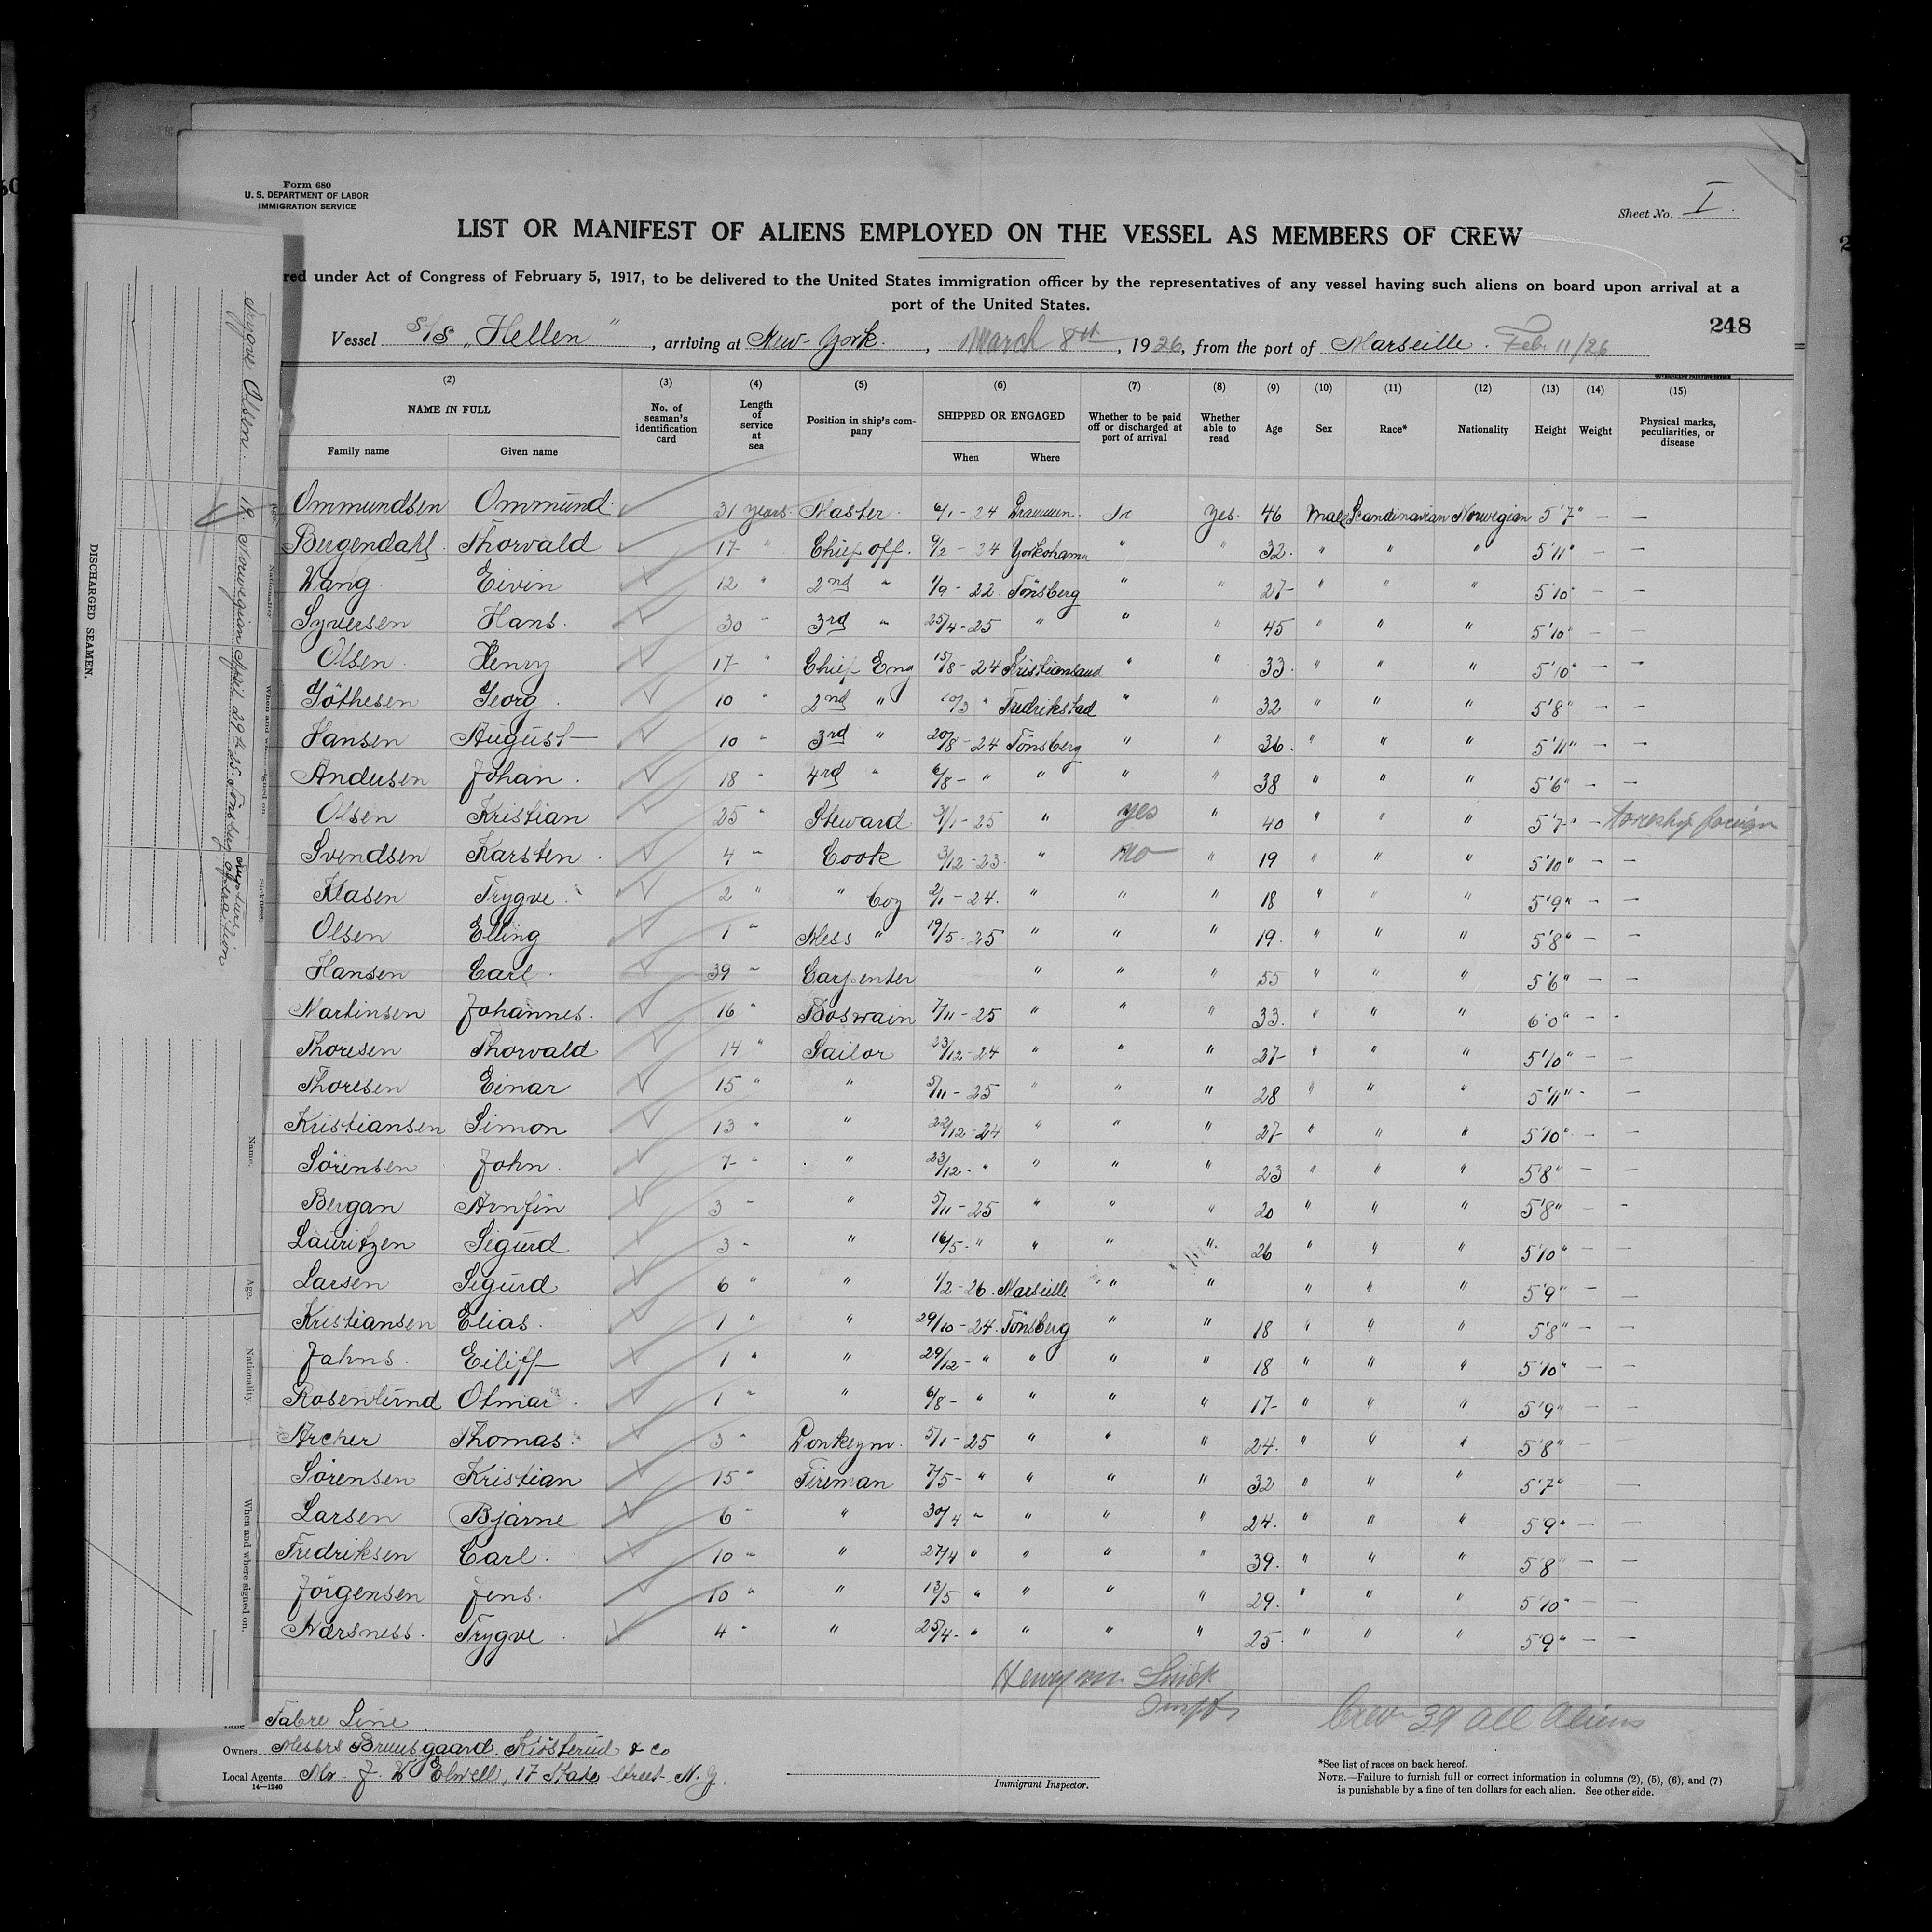 Form 680
U. S. DEPARTMENT OF LABOR
IMMIGRATION SERVICE
Sheet No. I.
LIST OR MANIFEST OF ALIENS EMPLOYED ON THE VESSEL AS MEMBERS OF CREW
red under Act of Congress of February 5, 1917, to be delivered to the United States immigration officer by the representatives of any vessel having such aliens on board upon arrival at a
port of the United States.
248
Vessel S/S "Hellen", arriving at New-York., March 8th, 1926, from the port of Marseille. Feb. 11/26
(2) (3) (4) (5) (6) (7) (8) (9) (10) (11) (12) (13) (14) (15)
NAME IN FULL No. of seaman's identification card Length of service at sea Position in ship's company SHIPPED OR ENGAGED Whether to be paid off or discharged at port of arrival Whether able to read Age Sex Race* Nationality Height Weight Physical marks, peculiarities, or disease
Family name Given name When Where
Ommundsen Ommund. 31 years. Master. 6/1 - 24 Drammen. No Yes. 46 Male Scandinavian Norwegian 5'7" — —
Bergendahl. Thorvald 17 " Chief off. 9/2 - 24 Yorkohama " " 32. " " " 5'11" — —
Wang. Eivin 12 " 2nd " 1/9 - 22 Tönsberg " " 27 " " " 5'10" — —
Syversen Hans. 30 " 3rd " 25/4 - 25 " " " 45 " " " 5'10" — —
Olsen. Henry 17 " Chief Eng 15/8 - 24 Kristiansand " " 33. " " " 5'10" — —
Göthesen Georg. 10 " 2nd " 10/3 " Fredrikstad " " 32 " " " 5'8" — —
Hansen August 10 " 3rd " 20/8 - 24 Tönsberg " " 36. " " " 5'11" — —
Andersen Johan. 18 " 4rd " 6/8 - " " " " 38 " " " 5'6" — —
Olsen Kristian 25 " Steward 3/1 - 25 " yes " 40 " " " 5'7" — foreign
Svendsen Karsten. 4 " Cook 3/12 - 23. " no " 19 " " " 5'10" — —
Klasen Trygve. 2 " " Boy 2/1 - 24. " " " 18 " " " 5'9" — —
Olsen Elling 1 " Mess " 19/5 - 25 " " " 19. " " " 5'8" — —
Hansen Carl. 39 " Carpenter " " " 55 " " " 5'6" — —
Martinsen Johannes. 16 " Boswain 7/11 - 25 " " " 33. " " " 6'0" — -
Thoresen Thorvald 14 " Sailor 23/12 - 24 " " " 27 " " " 5'10" — —
Thoresen Einar 15 " " 5/11 - 25 " " " 28 " " " 5'11" - —
Kristiansen Simon 13 " " 22/12 - 24 " " " 27 " " " 5'10" - —
Sörensen John. 7 " " 23/12 - " " " " 23 " " " 5'8" — —
Bergan Arnfin 3 " " 5/11 - 25 " " " 20 " " " 5'8" — -
Lauritzen Sigurd 3 " " 16/5 - " " " " 26 " " " 5'10" — —
Larsen Sigurd 6 " " 1/2 - 26. Marseille " " " " " 5'9" — —
Kristiansen Elias. 1 " " 29/10 - 24. Tönsberg " " 18 " " " 5'8" — —
Jahns. Eiliff 1 " " 29/12 - " " " " 18 " " " 5'10" — —
Rosenlund Otmar. 1 " " 6/8 - " " " " 17 " " " 5'9" — —
Archer Thomas. 3 " Donkeym. 5/1 - 25 " " " 24. " " " 5'8" —
Sörensen Kristian 15 " Fireman 7/5 - " " " " 32 " " " 5'7" —
Larsen Bjarne 6 " " 30/4 " " " " 24. " " " 5'9" — —
Fredriksen Carl. 10 " " 27/4 " " " " 39. " " " 5'8" — —
Jörgensen Jens. 10 " " 13/5 " " " " 29. " " " 5'10" — —
Narsness. Trygve. 4 " " 25/4 - " " " " 25. " " " 5'9" — —
Henry M.
Crew 39 all Aliens
Line Fabre Line.
Owners Messrs Bruusgaard. Kiösterud & Co
Local Agents Mr. J. W Elwell, 17 State Street N. Y.
14—1240
Immigrant Inspector.
*See list of races on back hereof.
NOTE.—Failure to furnish full or correct information in columns (2), (5), (6), and (7)
is punishable by a fine of ten dollars for each alien. See other side.
DISCHARGED SEAMEN.
Trygve Olsen. 19. Norwegian April 29th 25. Tönsberg operaition
Name. Age. Nationality. When and where signed on.
Age. Nationality. Sickness.